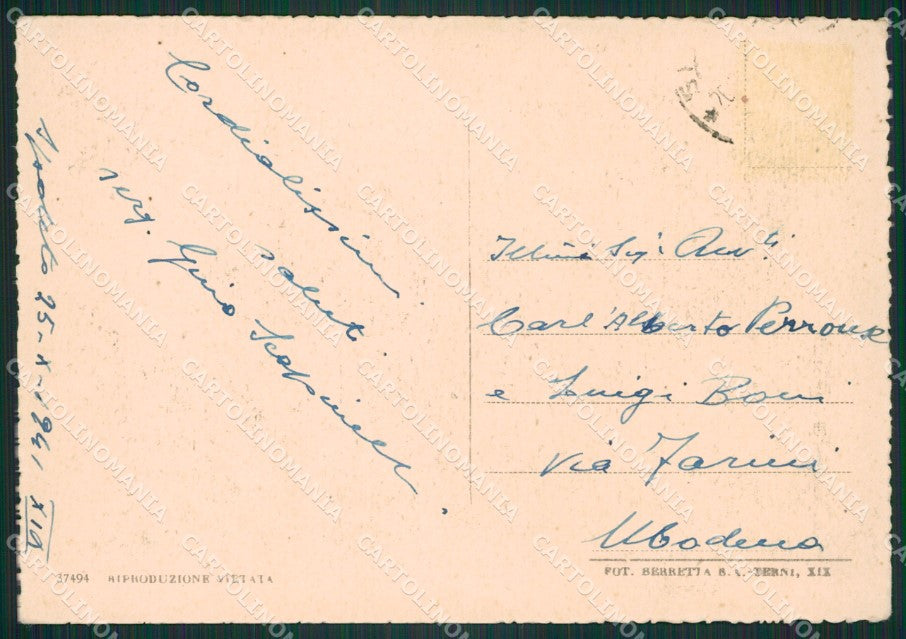 Cordialissimi
saluti
Gino
25-X-1941 XIX
Ill.mi Sig.i Avv.ti
Carl'Alberto Perrone
e Luigi Boni
Via Farini
Modena
37494 RIPRODUZIONE VIETATA
FOT. BERRETTA S.A.-TERNI, XIX
CARTOLINOMANIA